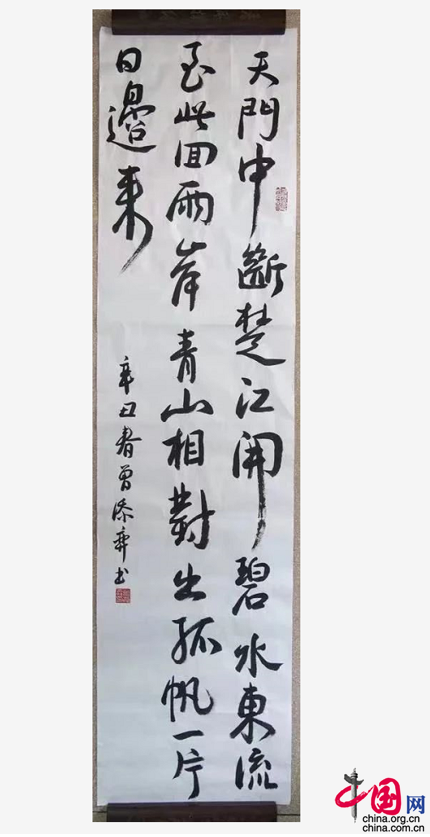 天門中斷楚江開碧水東流
至此回兩岸青山相對出孤帆一片
日邊來
辛丑春曾添书
中国网
china.org.cn
china.com.cn